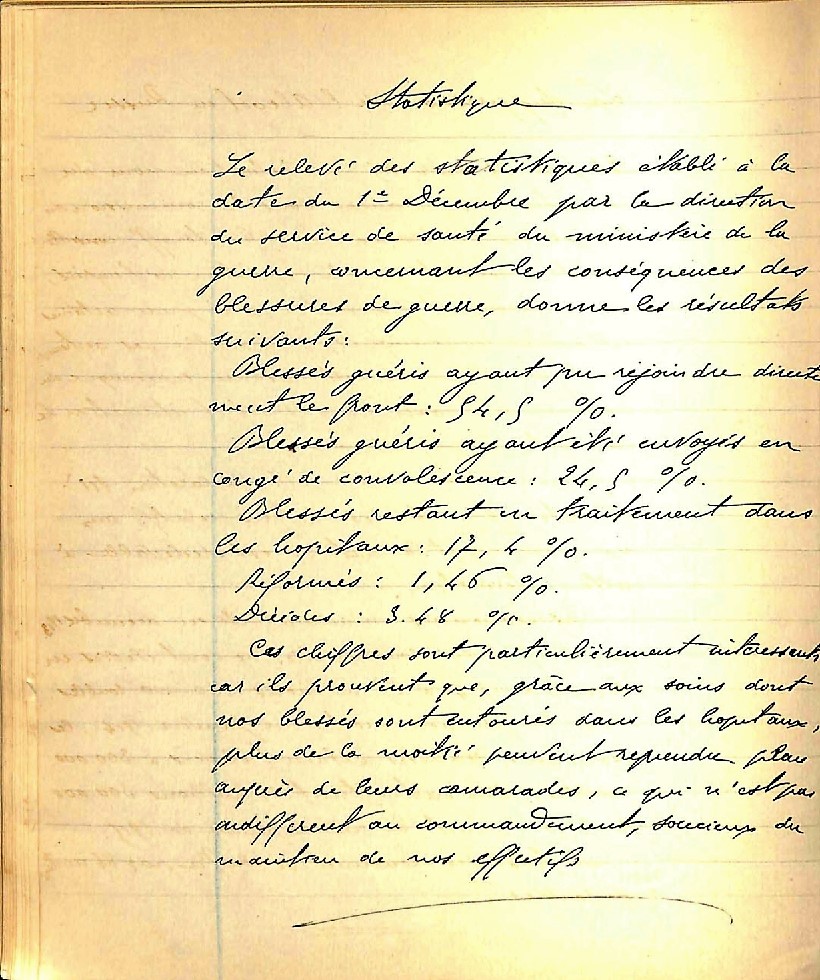 Statistique
Le relevé des statistiques établi à la
date du 1er Décembre par la direction
du service de santé du ministère de la
guerre, concernant les conséquences des
blessures de guerre, donne les résultats
suivants:
Blessés guéris ayant pu rejoindre directe
ment le front : 54,5 %.
Blessés guéris ayant été envoyés en
congé de convalescence : 24,5 %.
Blessés restant en traitement dans
les hopitaux : 17,4 %.
Réformés : 1,46 %.
Décédés : 3.48 %.
Ces chiffres sont particulièrement intéressants
car ils prouvent que, grâce aux soins dont
nos blessés sont entourés dans les hopitaux,
plus de la moitié peuvent reprendre place
auprès de leurs camarades, ce qui n'est pas
indifférent au commandement, soucieux du
maintien de nos effectifs